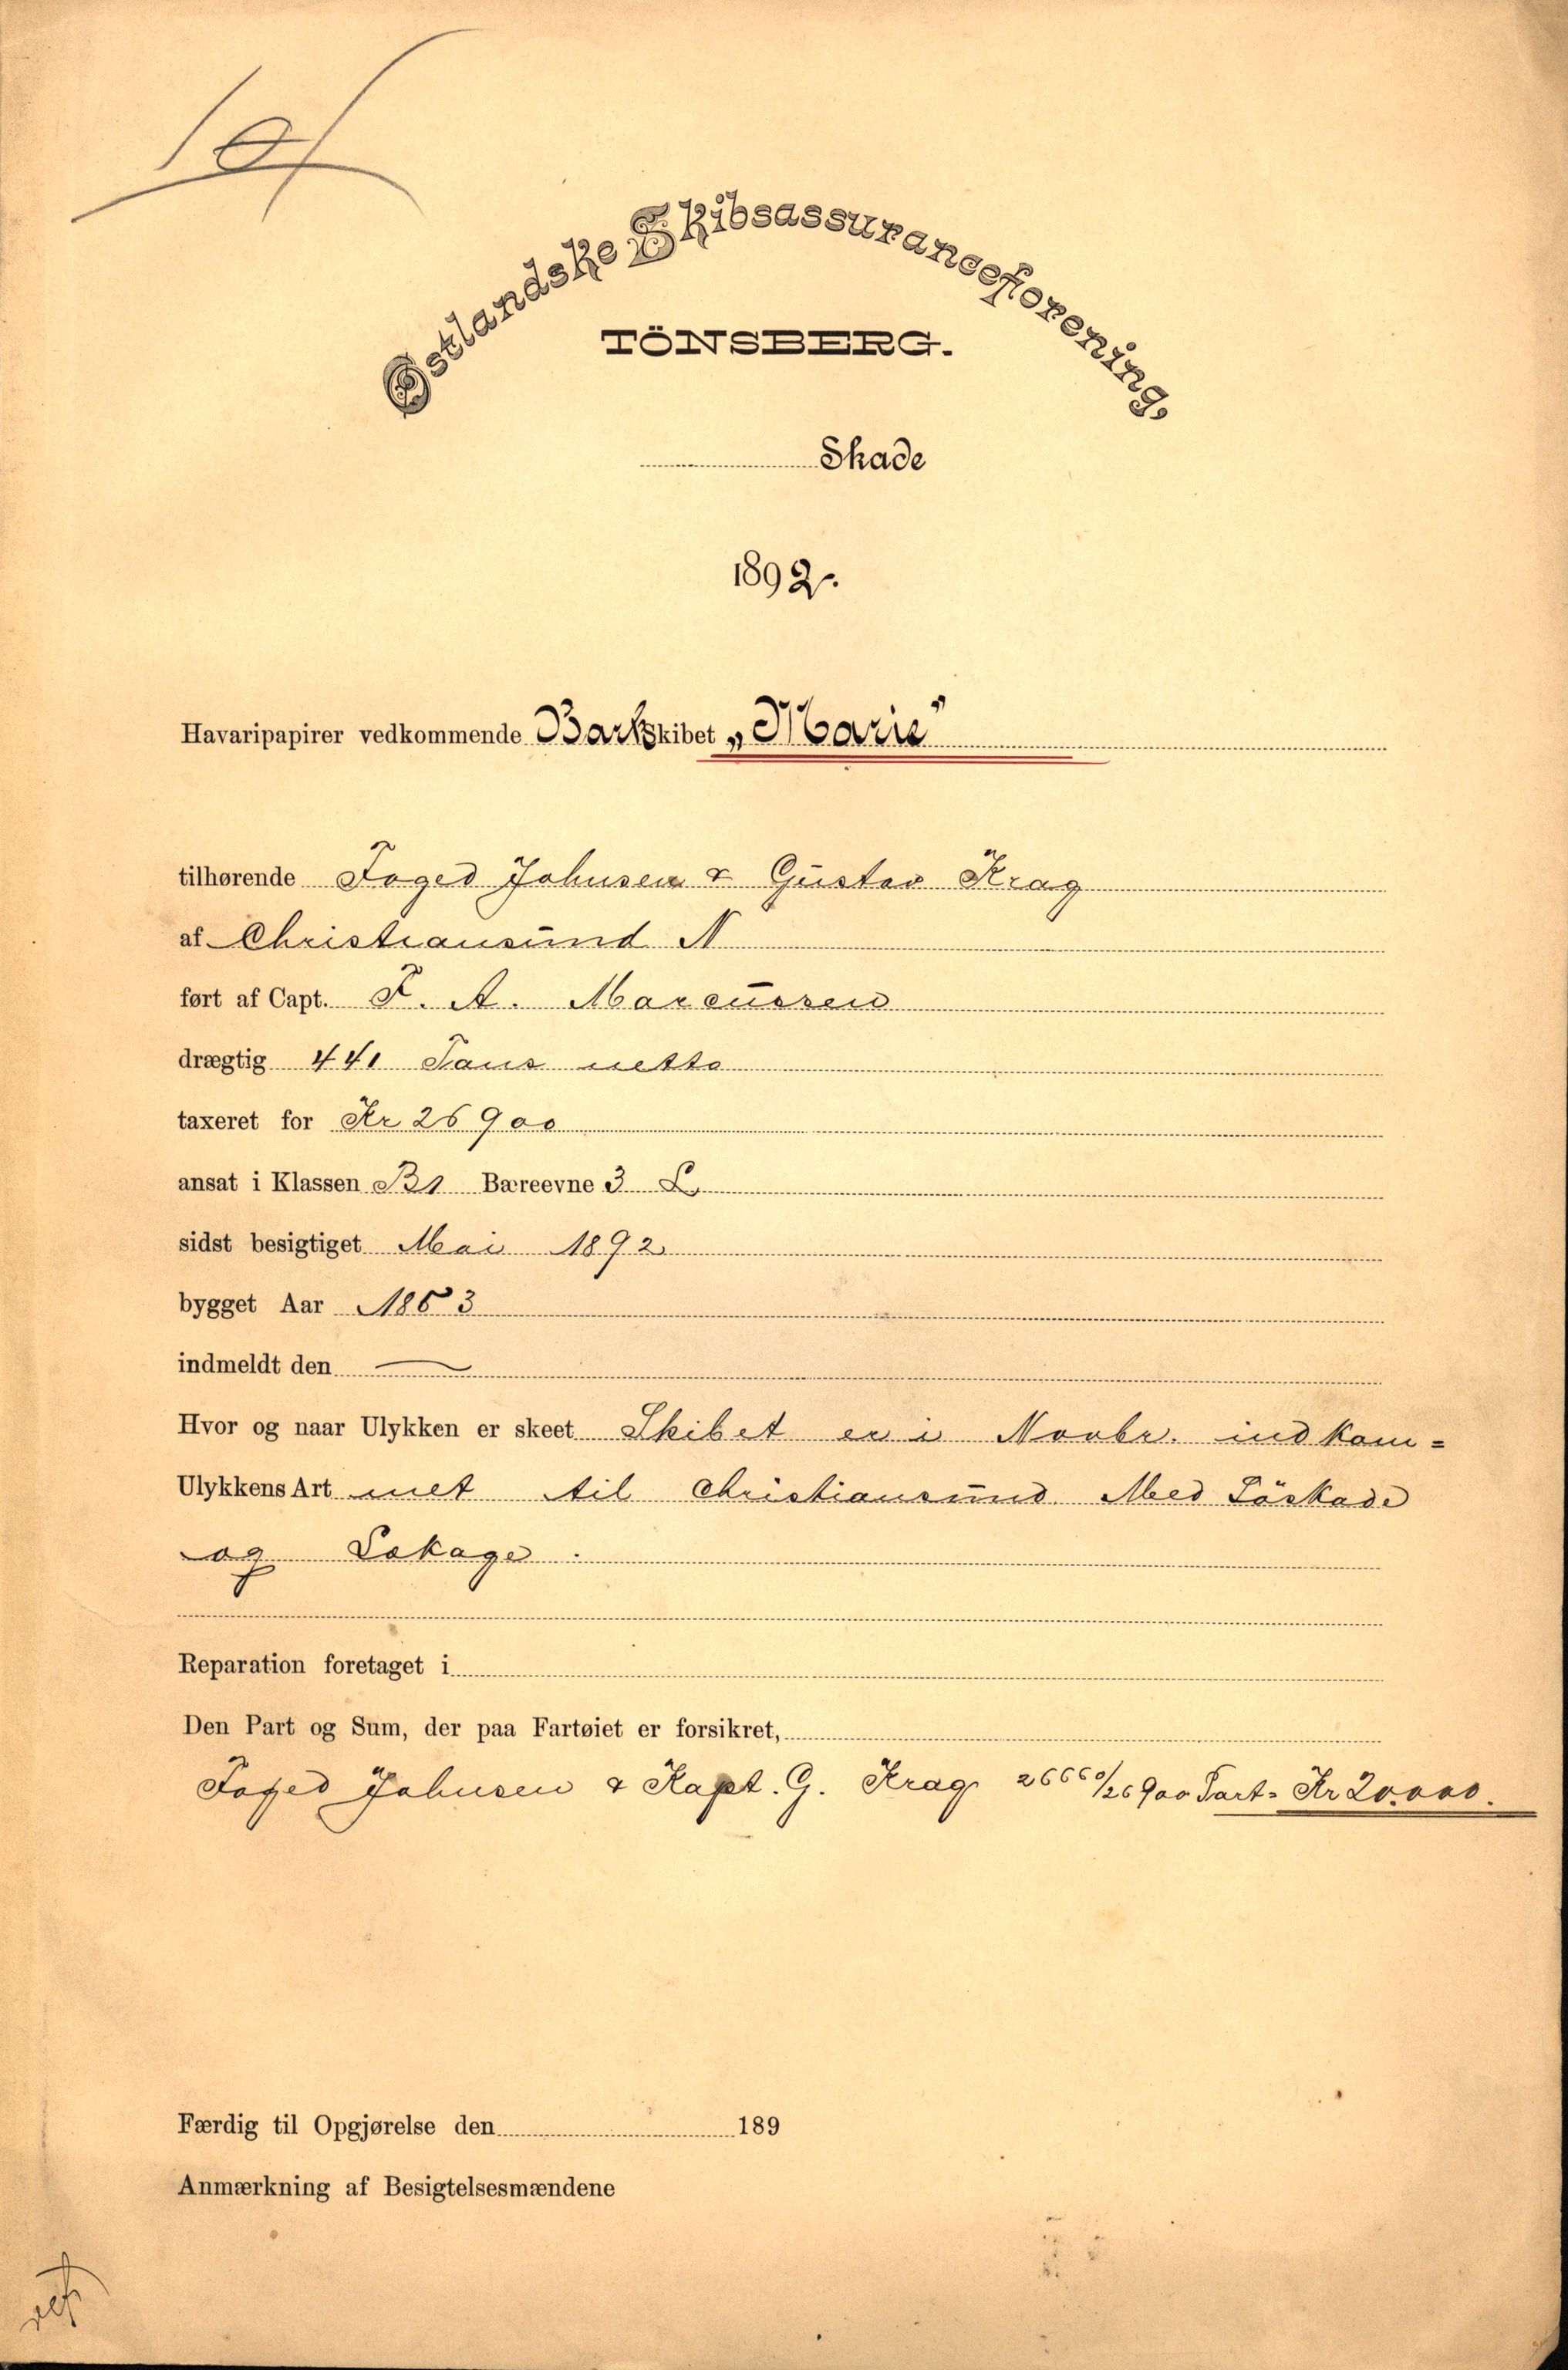 Østlandske Skibsassuranceforening,
TÖNSBERG.
Skade
1892.
Havaripapirer vedkommende Barkskibet „Marie"
tilhørende Foged Johnsen & Gustav Krag
af Christiansund N
ført af Capt. F. A. Marcussen
drægtig 441 Tons netto
taxeret for Kr 26900
ansat i Klassen B1 Bæreevne 3 L
sidst besigtiget Mai 1892
bygget Aar 1863
indmeldt den —
Hvor og naar Ulykken er skeet Skibet er i Novbr. indkom=
Ulykkens Art met til Christiansund Med Söskade
og Lækage.
Reparation foretaget i
Den Part og Sum, der paa Fartøiet er forsikret,
Foged Johnsen & Kapt. G. Krag 26660/26900 Part= Kr 20.000.
Færdig til Opgjørelse den 189
Anmærkning af Besigtelsesmændene